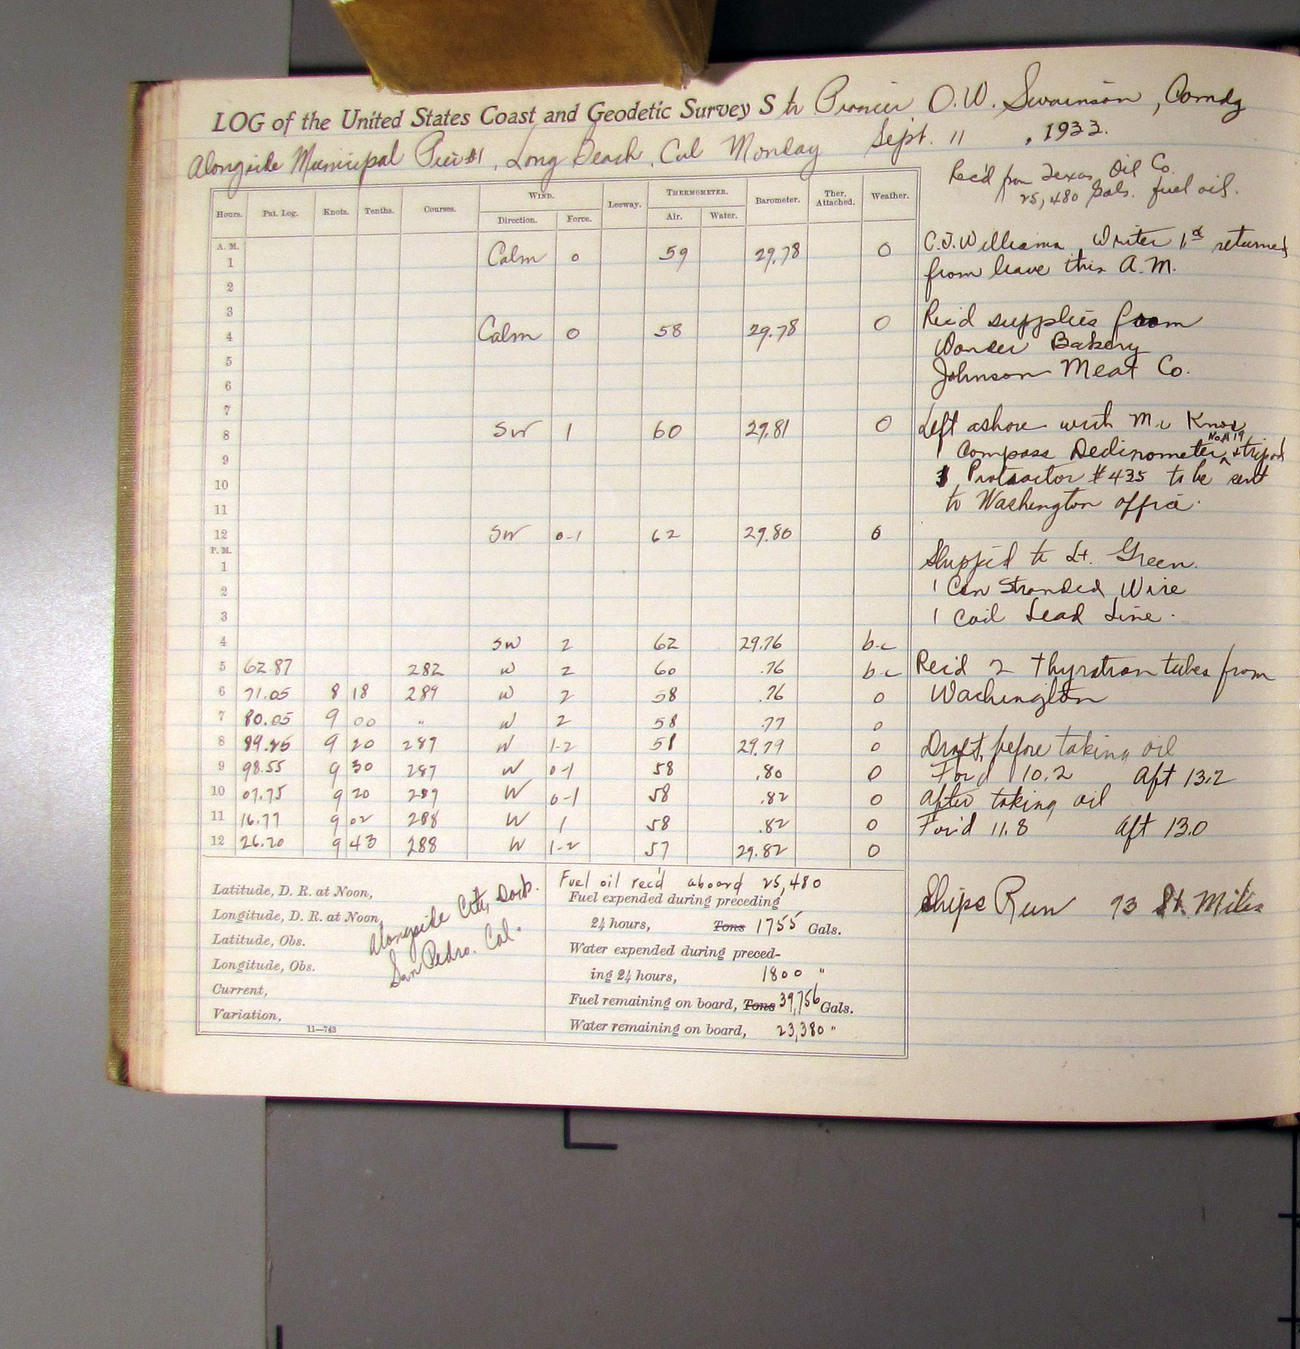 LOG of the United States Coast and Geodetic Survey S tr Pioneer O.W. Swainson, Comdg
Alongside Municipal Pier #1, Long Beach, Cal Monday Sept. 11, 1933.
Hours. Pat. Log. Knots. Tenths. Courses. WIND. Leeway. THERMOMETER. Barometer. Ther. Attached. Weather.
Direction. Force. Air. Water.
A. M.
1 Calm 0 59 29.78 0
2
3
4 Calm 0 58 29.78 0
5
6
7
8 SW 1 60 29.81 0
9
10
11
12 SW 0-1 62 29.80 0
P. M.
1
2
3
4 SW 2 62 29.76 b-c
5 62.87 282 W 2 60 .76 b-c
6 71.05 8 18 289 W 2 58 .76 0
7 80.05 9 00 " W 2 58 .77 0
8 9 20 289 W 1-2 58 29.79 0
9 98.55 9 30 287 W 0-1 58 .80 0
10 07.75 9 20 289 W 0-1 58 .82 0
11 16.77 9 02 288 W 1 58 .82 0
12 26.20 9 43 288 W 1-2 57 29.82 0
Rec'd from Texas Oil Co.
25,480 Gals. fuel oil.
C.J. Williams, Writer 1st returned
from leave this A.M.
Rec'd supplies from
Wonder Bakery
Johnson Meat Co.
Left ashore with Mr Knox
1 Compass Declinometer No. 19 & tripod
1 Protractor #435 to be sent
to Washington office.
Shipped to Lt. Green.
1 Can Stranded Wire
1 Coil Lead Line.
Rec'd 2 Thyratron tubes from
Washington
Draft before taking oil
For'd 10.2 Aft 13.2
After taking oil
For'd 11.8 Aft 13.0
Ships Run 93 St. Miles
Latitude, D. R. at Noon,
Longitude, D. R. at Noon,
Latitude, Obs.
Longitude, Obs.
Current,
Variation,
11—743
Alongside City Dock.
San Pedro. Cal.
Fuel oil rec'd aboard 25,480
Fuel expended during preceding
24 hours, Tons 1755 Gals.
Water expended during preced-
ing 24 hours, 1800 "
Fuel remaining on board, Tons 39,756 Gals.
Water remaining on board, 23,380 "